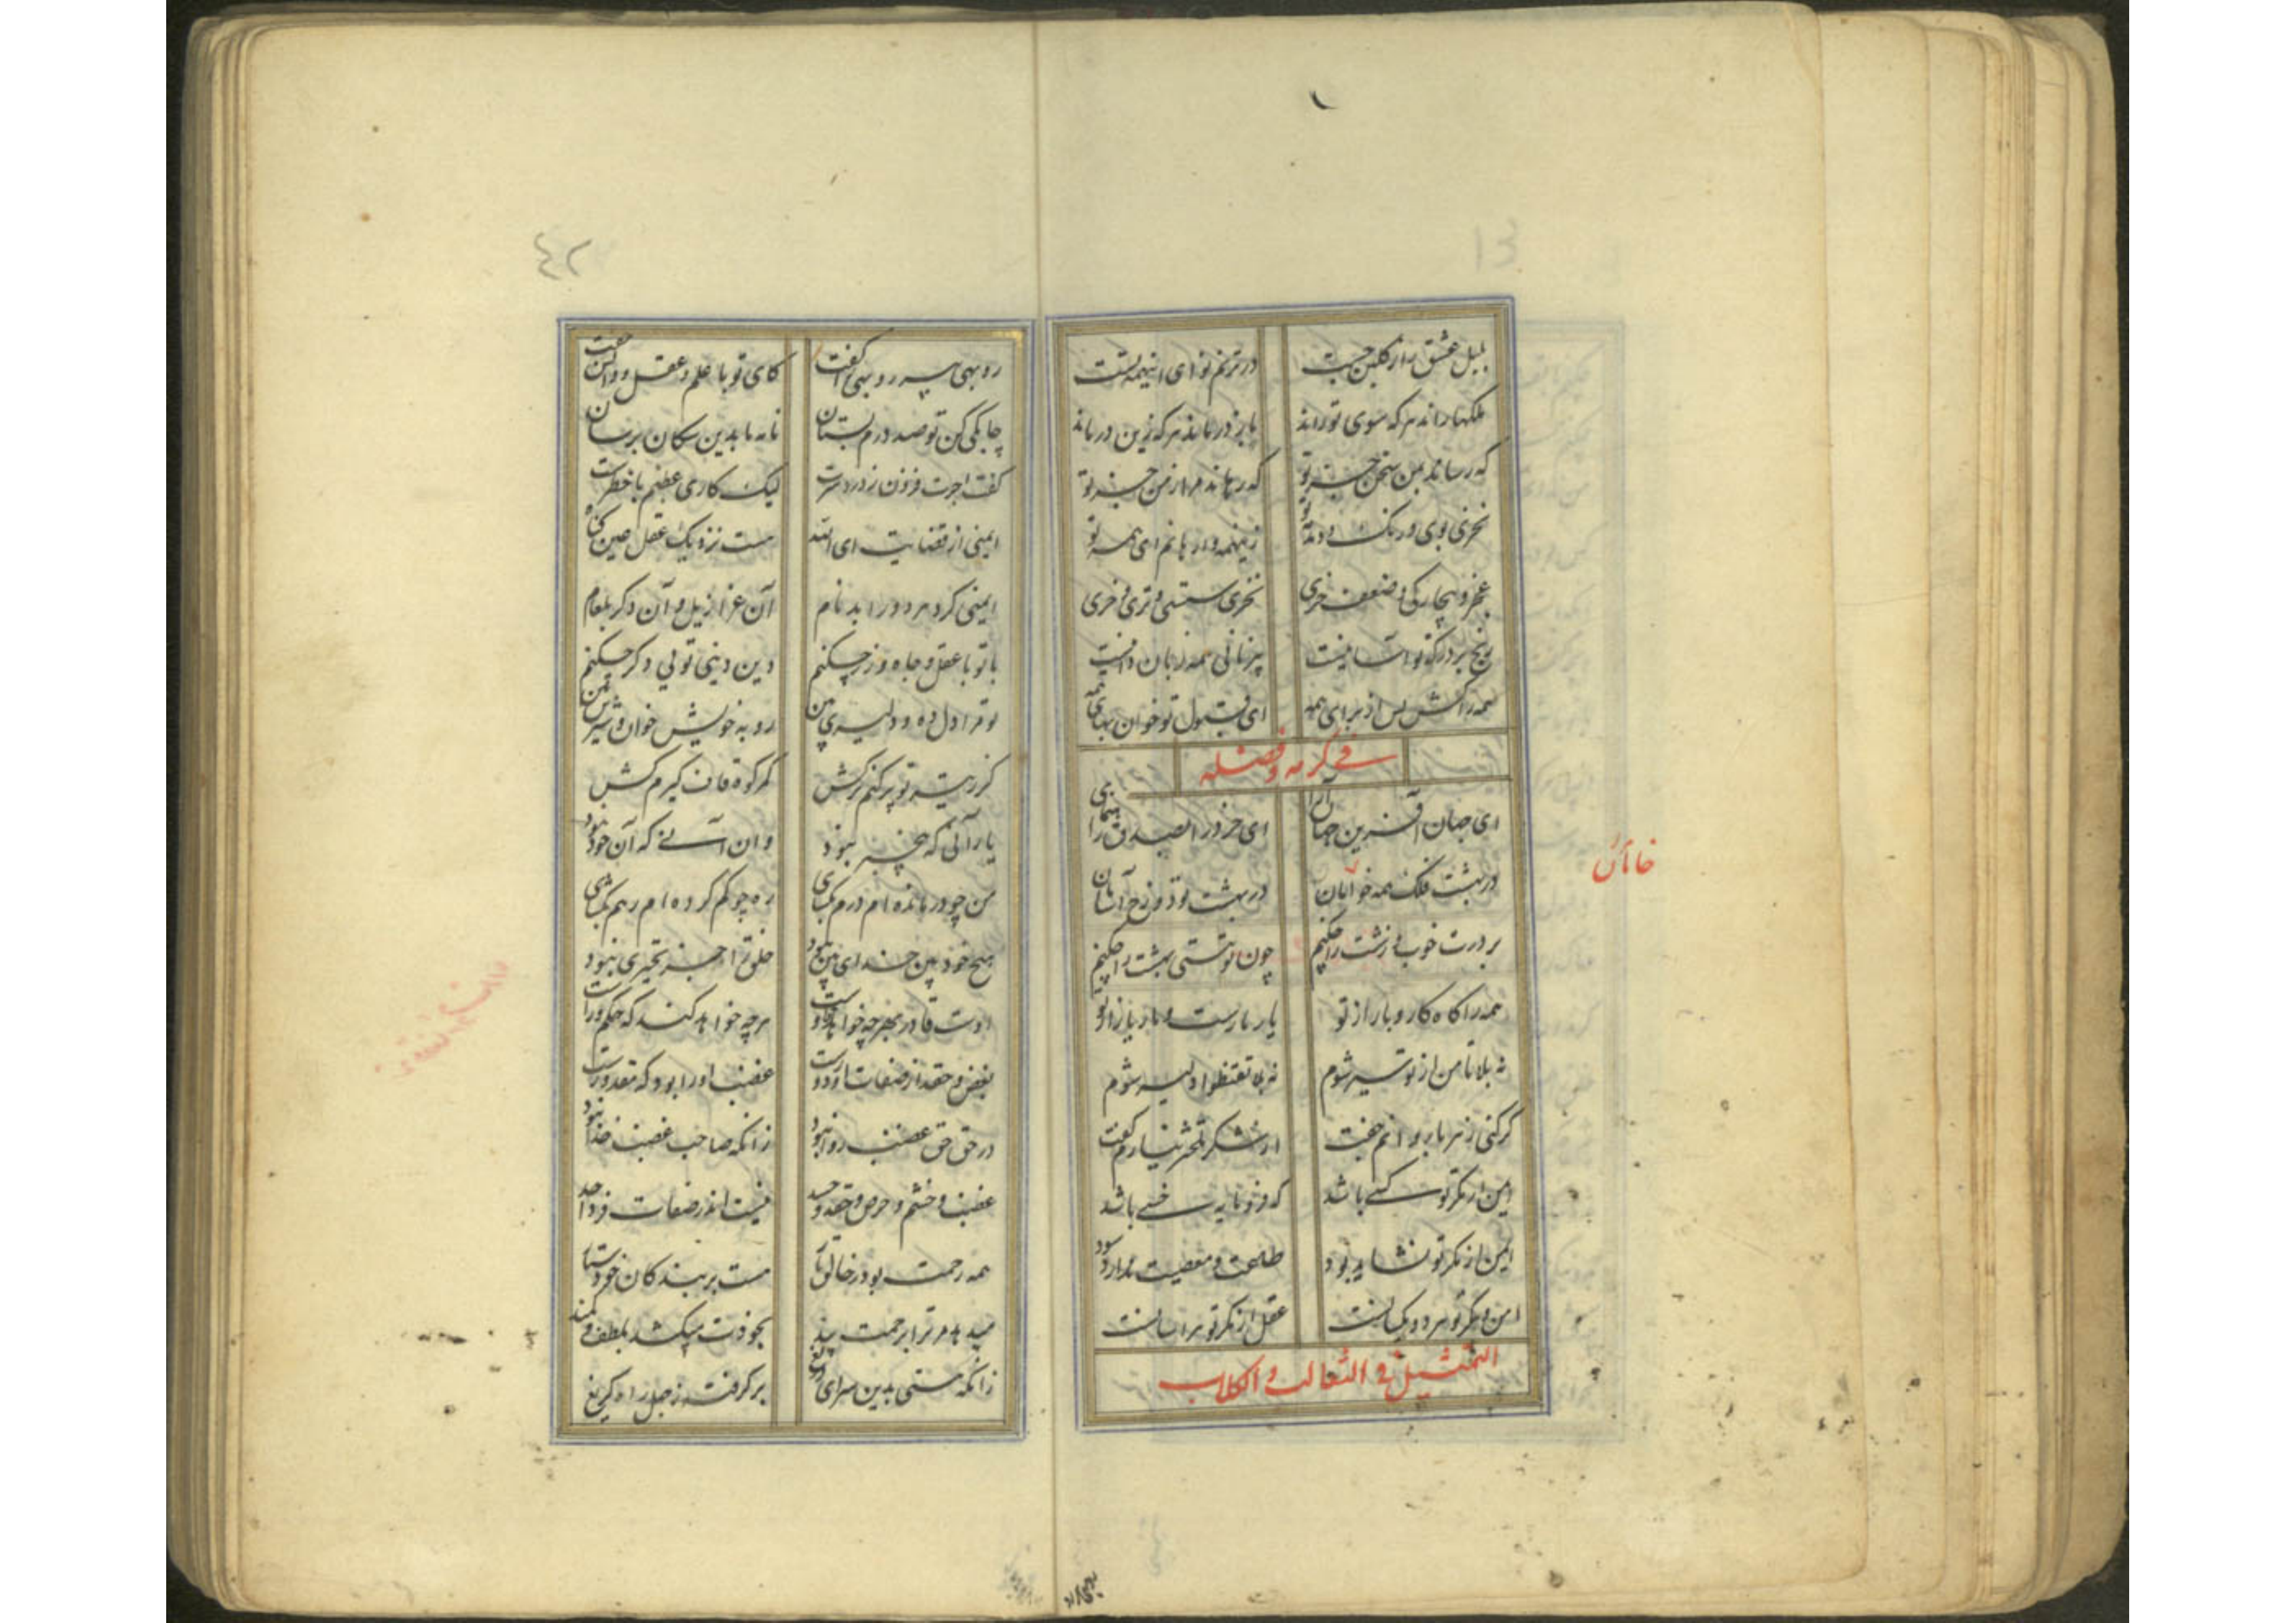 بلبل عشق را ز گلبن جست در ترنم نوای اینهمه تست
ملکها راند هر که سوی تو راند باز در ماند هر که زین در ماند
که رساند بمن سخن جز تو که رهاند مرا ز من جز تو
نخرد بوی و رنگ و دمدمه تو زینهمه وارهانم ای همه تو
عجز و بیچارگی و ضعف خری نخری سستی و تری و خری
رنج بر درگه تو آسانیست بیزبانی همه زبان دانیست
همه را کش پس از برای همه ای قبول تو خونبهای همه
فی کرمه و فضله
ای جهان آفرین جان آرا ای خرد را بصدق راهنمای
در بهشت فلک همه خامان در بهشت تو دوزخ آشامان
بر درت خوب و زشت را چکنم چون تو هستی بهشت را چکنم
همه را گاه کار و بار از تو یار یارست و بار یار از تو
نه بلا تأمن از تو سیر شوم نه بلا تقنطوا دلیر شوم
گر کنی زهر با روانم جفت از شکر تلختر نیارم گفت
ایمن از مکر تو کسی باشد که فرومایه خسی باشد
ایمن از مکر تو نشاید بود طاعت و معصیت ندارد سود
امن و مکر تو هر دو یکسانست عقل از مکر تو هراسانست
التمثیل فی الثعالب و الکلاب
خامان
٤٢
روبهی پیر روبهی را گفت کای تو با علم و عقل و دانش جفت
چابکی کن تو صد درم بستان نامه ما بدین سگان برسان
گفت اجرت فزون ز دردسرست لیک کاری عظیم با خطرست
ایمنی از قضایت ای الله هست نزدیک عقل عین گناه
ایمنی کرد هر دو را بدنام آن عزازیل و آن دگر بلعام
با تو با عقل و جاه و زر چکنم دین و دنیا توئی دگر چکنم
تو مرا دل ده و دلیری بین رو به خویش خوان و شیری بین
گر ز تیر تو پر کنم ترکش کمر کوه قاف گیرم کش
یار آنی که بیخرد نبود وان آنی که آن خود نبود
من چو درمانده ام درم بگشای ره چو گم کرده ام رهم بنمای
هیچ خودبین خدای بین نبود
اوست قادر بهرچه خواهد و خواست هرچه خواهد کند که حکم وراست
بغض و حقد از صفات او دورست غضب او را بود که مقدورست
در حق حق غضب روا نبود زانکه صاحب غضب خدا نبود
غضب و خشم و حرص و حقد و حسد نیست اندر صفات فرد احد
همه رحمت بود ز خالق ما هست بر بندگان خود ستار
میدهد مر ترا برحمت پند بخودت میکشد بلطف و کمند
زانکه هستی بدین سرای دریغ برگرفته ز جهل راه گریغ